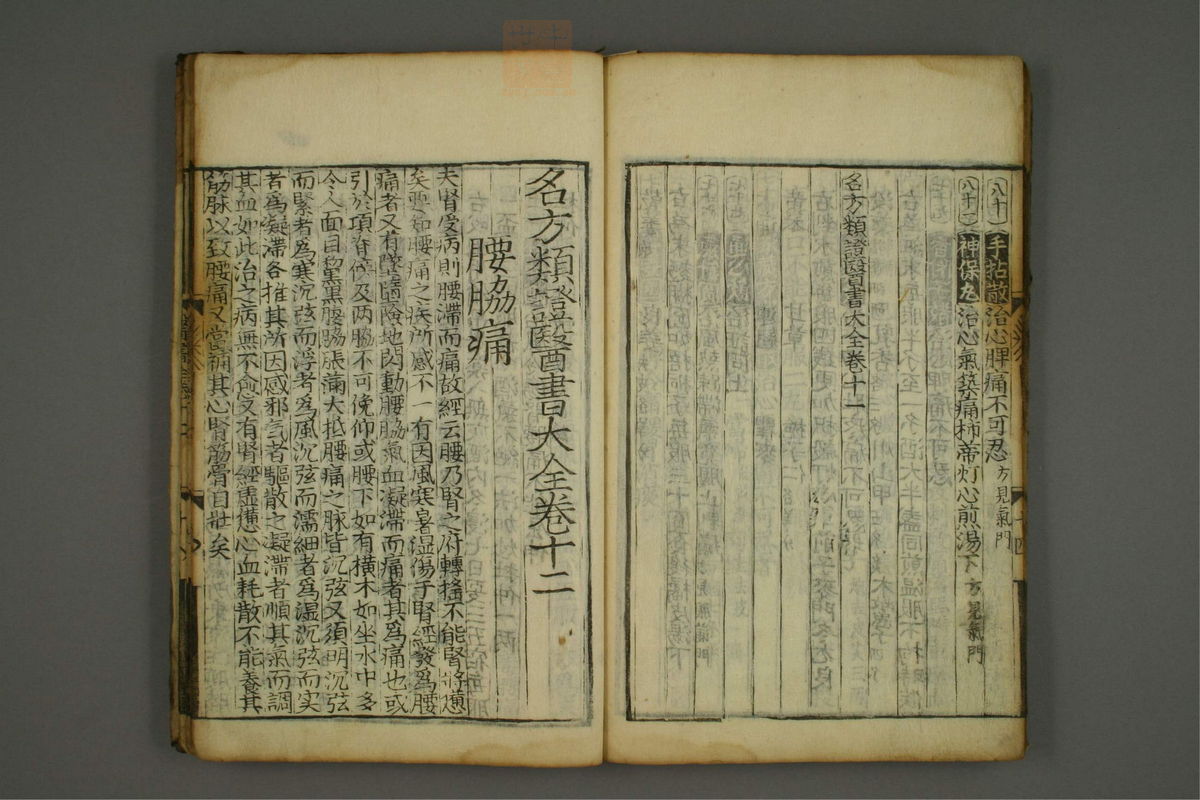 八十一 手拈散 治心脾痛不可忍 方見氣門
八十二 神保丸 治心氣築痛柿蒂灯心煎湯下 方見氣門
名方類證醫書大全卷十一
名方類證醫書大全卷十二
腰脇痛
夫腎受病則腰滯而痛故經云腰乃腎之府轉搖不能腎將憊
矣要知腰痛之疾所感不一有因風寒暑湿傷于腎經發爲腰
痛者又有墜墮險地閃動腰脇氣血凝滯而痛者其爲痛也或
引於項脊傍及两脇不可俛仰或腰下如有横木如坐水中多
令人面目黎黒腰脇脹滿大抵腰痛之脉皆沉弦又須明沉弦
而緊者爲寒沉弦而浮者爲風沉弦而濡細者爲湿沉弦而実
者爲凝滯各推其所因感邪气者驅散之凝滯者順其氣而調
其血如此治之病無不愈又有腎經虛憊心血耗散不能養其
筋脉以致腰痛又當補其心腎筋骨自壯矣